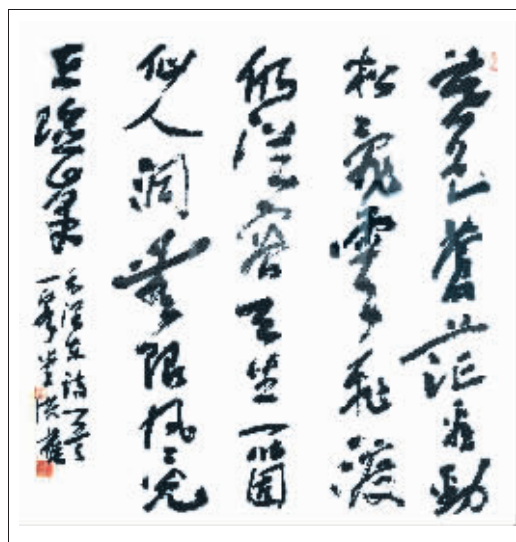 暮色蒼茫看勁
松亂雲飛渡
仍從容天生一個
仙人洞無限風光
在險峯
毛澤東詩一首